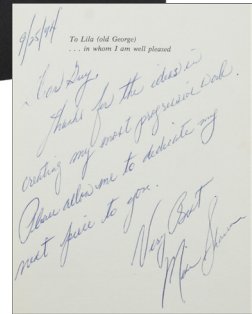 9/25/94
To Lila (old George)
. . . in whom I am well pleased
Guy,
Thanks for the ideas in
creating my most progressive work.
Please allow me to dedicate my
next piece to you.
Very Best